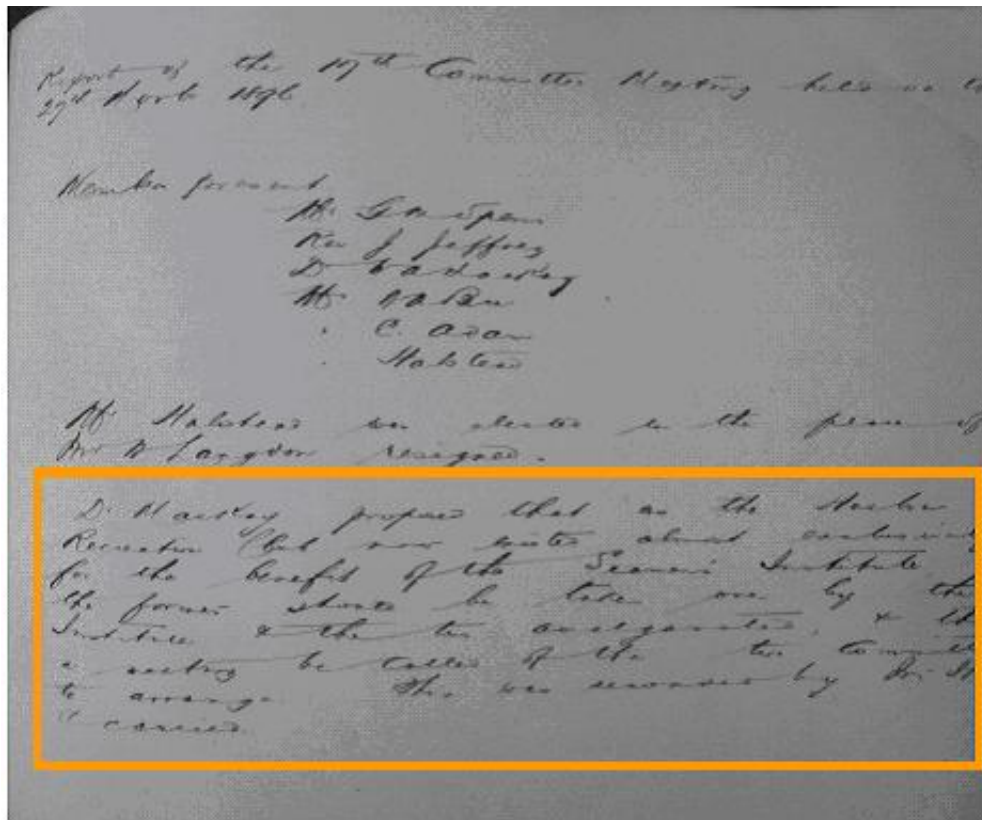 Report of the 17th Committee Meeting held on th
27th Novb 1896
Members present
Mr. G Spen
Rev J Jeffrey
Dr Mackey
Mr
C. Adam
Halstead
Mr Halstead was elected in the place of
Mr Langdon resigned.
Dr Mackey proposed that as the
Recreation Club now exists almost exclusively
for the benefit of the Seamen's Institute
the former should be taken over by the
Institute & the two amalgamated, & th
a meeting be called of the two Committ
to arrange. This was seconded by Mr
carried